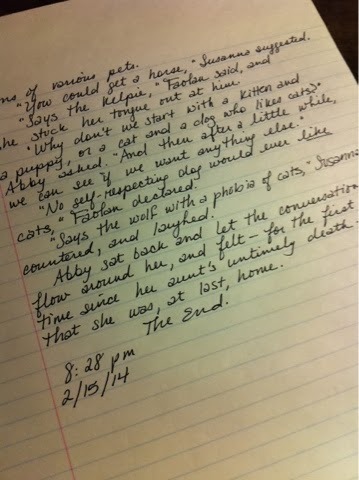 of various pets.
"You could get a horse," Susanna suggested.
"Says the Kelpie," Faolan said, and
he stuck her tongue out at him.
"Why don't we start with a kitten and
a puppy, or a cat and a dog who likes cats?"
Abby asked. "And then after a little while,
we can see if we want anything else."
"No self-respecting dog would ever like
cats," Faolan declared.
"Says the wolf with a phobia of cats," Susanna
countered, and laughed.
Abby sat back and let the conversation
flow around her, and felt - for the first
time since her aunt's untimely death -
that she was, at last, home.
The End.
8:28 pm
2/15/14